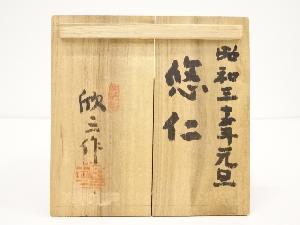 昭和三十五年元旦
悠仁
欣三作